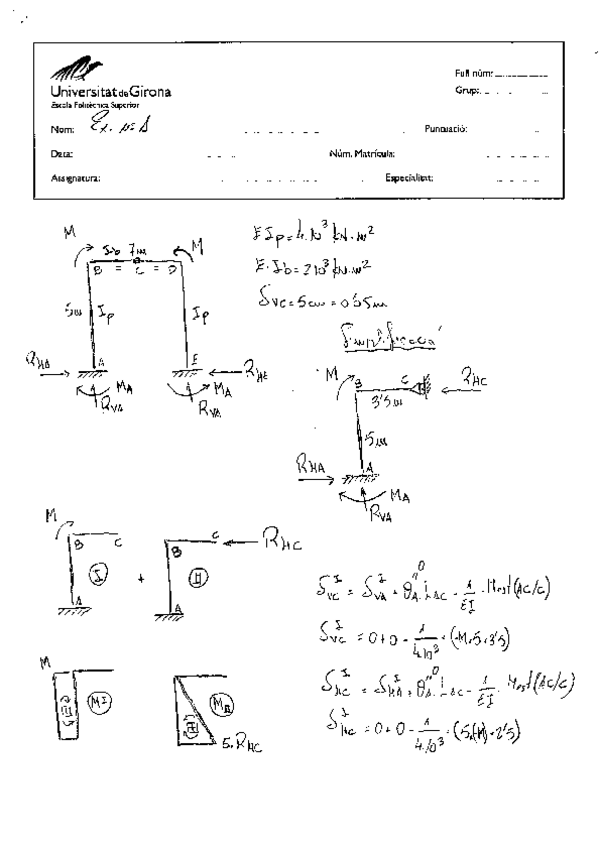 Full núm:
Universitat de Girona
Grup:
Escola Politècnica Superior
Nom: Ex. nº
Puntuació:
Data:
Núm. Matrícula:
Assignatura:
Especialitat:
M Ib 7m M
B = C = D
5m Ip Ip
A E
RHA RHE
MA MA
RVA RVA
EIp=4.10³ kN.m²
E.Ib=2 10³ kN.m²
δvc=5cm=0'05m
M B C RHC
3'5m
5m
A
RHA
MA
RVA
M
B C
I
A
+
B C RHC
II
A
M
MI
MII
5.RHC
δ I VC = δ I VA + θ I A . LAC - 1/EI . Mest(AC/C)
0
δ I VC = 0+0 - 1/4.10³ . (-M.5.3'5)
δ I HC = δ I HA + θ I A . LAC - 1/EI . Mest(AC/C)
0
δ I HC = 0+0 - 1/4.10³ . (5.(M).2'5)